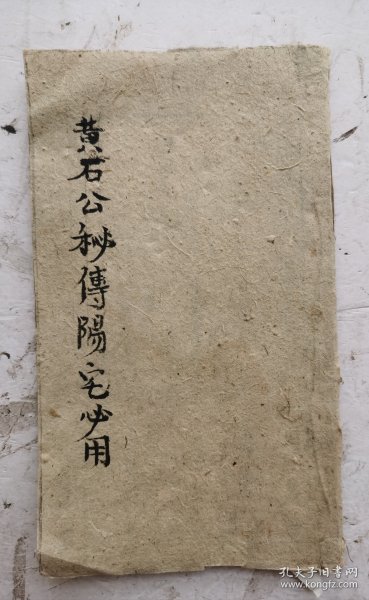 黄石公秘傳陽宅必用
孔夫子旧书网
www.kongfz.com